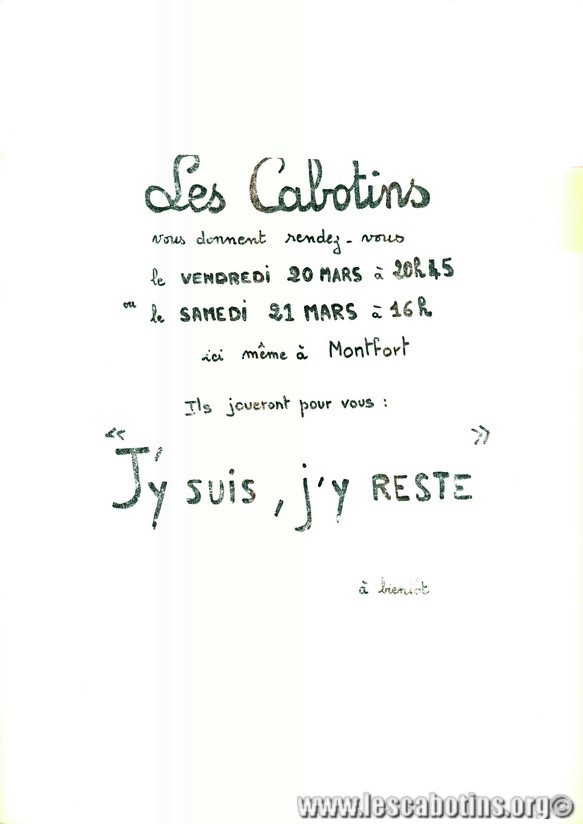 Les Cabotins
vous donnent rendez-vous
le VENDREDI 20 MARS à 20h45
ou le SAMEDI 21 MARS à 16h
ici même à Montfort
Ils joueront pour vous :
« J'y suis, j'y RESTE »
à bientôt
www.lescabotins.org©